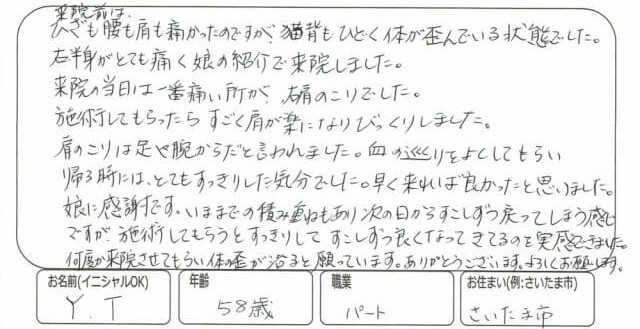 来院前は、
ひざも腰も肩も痛かったのですが、猫背もひどく体が歪んでいる状態でした。
右半身がとても痛く娘の紹介で来院しました。
来院の当日は一番痛い所が、右肩のこりでした。
施術してもらったらすごく肩が楽になりびっくりしました。
肩のこりは足や腕からだと言われました。血の巡りをよくしてもらい
帰る時には、とてもすっきりした気分でした。早く来れば良かったと思いました。
娘に感謝です。いままでの積み重ねもあり次の日からすこしずつ戻ってしまう感じ
ですが、施術してもらうとすっきりして すこしずつ良くなってきてるのを実感できました。
何度か来院させてもらい体の歪が治ると願っています。ありがとうございます。よろしくお願いします。
お名前(イニシャルOK) 年齢 職業 お住まい(例:さいたま市)
Y.T 58歳 パート さいたま市